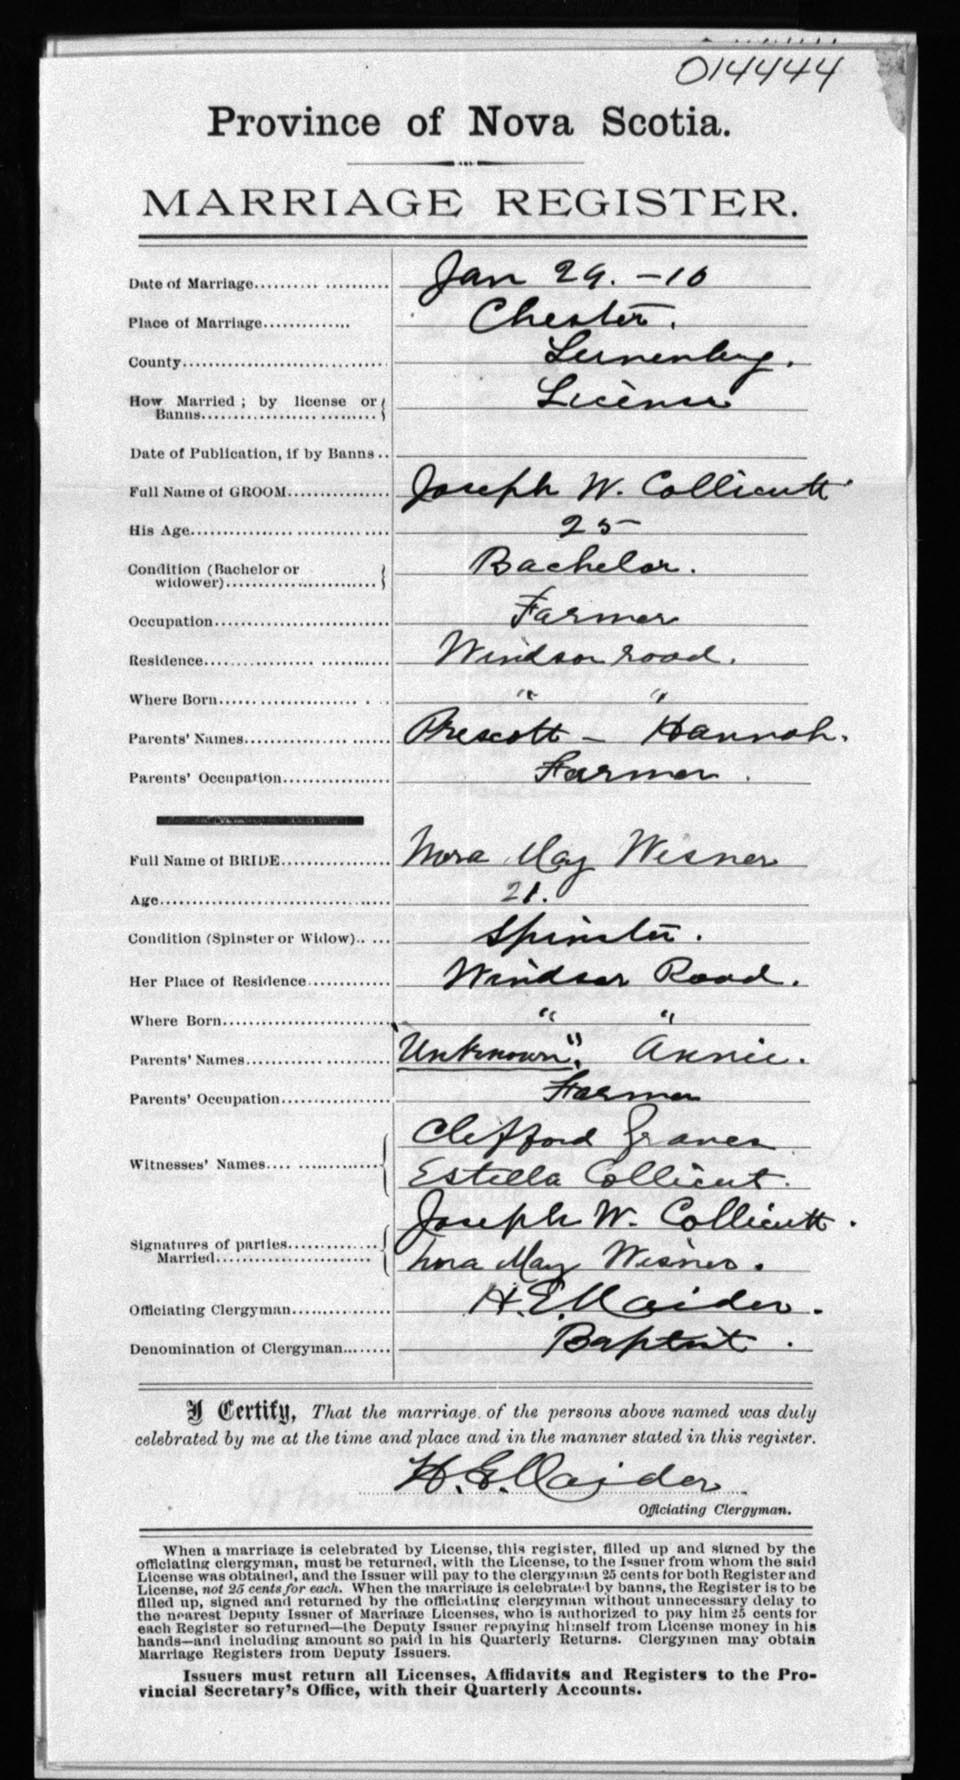 014444
Province of Nova Scotia.
MARRIAGE REGISTER.
Date of Marriage Jan 29. -10
Place of Marriage Chester.
County Lunenburg.
How Married ; by license or Banns License
Date of Publication, if by Banns
Full Name of GROOM Joseph W. Collicutt
His Age 25
Condition (Bachelor or widower) Bachelor.
Occupation Farmer
Residence Windsor road.
Where Born " "
Parents' Names Prescott - Hannah.
Parents' Occupation Farmer.
Full Name of BRIDE Nora May Wisner
Age 21.
Condition (Spinster or Widow) Spinster.
Her Place of Residence Windsor Road.
Where Born " "
Parents' Names "Unknown". Annie.
Parents' Occupation Farmer
Witnesses' Names Clifford Graves
Estella Collicut.
Signatures of parties Joseph W. Collicutt.
Married Nora May Wisner.
Officiating Clergyman H. E.
Denomination of Clergyman Baptist.
I Certify, That the marriage of the persons above named was duly
celebrated by me at the time and place and in the manner stated in this register.
H. E.
Officiating Clergyman.
When a marriage is celebrated by License, this register, filled up and signed by the
officiating clergyman, must be returned, with the License, to the Issuer from whom the said
License was obtained, and the Issuer will pay to the clergyman 25 cents for both Register and
License, not 25 cents for each. When the marriage is celebrated by banns, the Register is to be
filled up, signed and returned by the officiating clergyman without unnecessary delay to
the nearest Deputy Issuer of Marriage Licenses, who is authorized to pay him 25 cents for
each Register so returned—the Deputy Issuer repaying himself from License money in his
hands—and including amount so paid in his Quarterly Returns. Clergymen may obtain
Marriage Registers from Deputy Issuers.
Issuers must return all Licenses, Affidavits and Registers to the Pro-
vincial Secretary's Office, with their Quarterly Accounts.